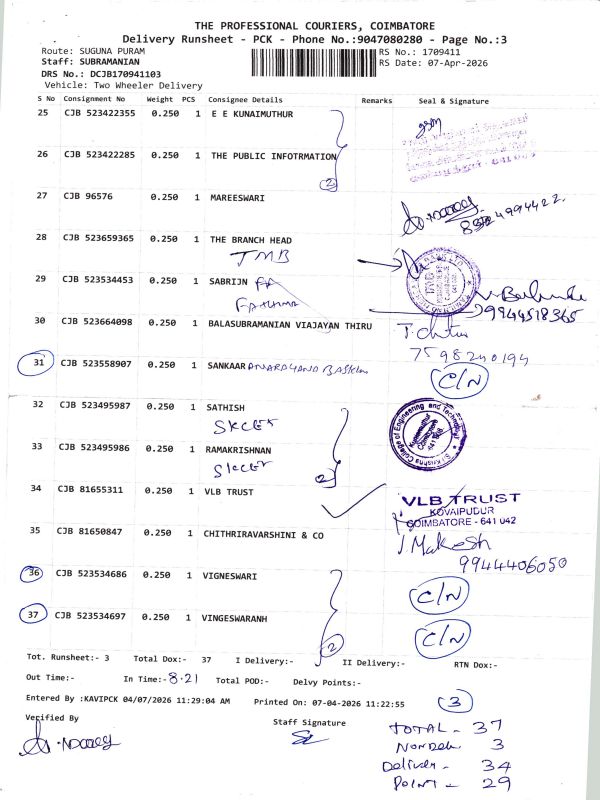 THE PROFESSIONAL COURIERS, COIMBATORE
Delivery Runsheet - PCK - Phone No.:9047080280 - Page No.:3
Route: SUGUNA PURAM
RS No.: 1709411
Staff: SUBRAMANIAN
RS Date: 07-Apr-2026
DRS No.: DCJB170941103
Vehicle: Two Wheeler Delivery
S No Consignment No Weight PCS Consignee Details Remarks Seal & Signature
25 CJB 523422355 0.250 1 E E KUNAIMUTHUR
26 CJB 523422285 0.250 1 THE PUBLIC INFOTRMATION
2
27 CJB 96576 0.250 1 MAREESWARI
28 CJB 523659365 0.250 1 THE BRANCH HEAD
TMB
29 CJB 523534453 0.250 1 SABRIJN
Fathima
9944518365
30 CJB 523664098 0.250 1 BALASUBRAMANIAN VIAJAYAN THIRU
7598240194
31 CJB 523558907 0.250 1 SANKAAR
C/N
32 CJB 523495987 0.250 1 SATHISH
SKCET
Sri Krishna College of Engineering and Technology
Kuniamuthur
Coimbatore
641 008
33 CJB 523495986 0.250 1 RAMAKRISHNAN
SKCET
2
34 CJB 81655311 0.250 1 VLB TRUST
VLB TRUST
KOVAIPUDUR
COIMBATORE - 641 042
35 CJB 81650847 0.250 1 CHITHRIRAVARSHINI & CO
J. Makesh
9944406050
36 CJB 523534686 0.250 1 VIGNESWARI
C/N
37 CJB 523534697 0.250 1 VINGESWARANH
C/N
2
Tot. Runsheet:- 3 Total Dox:- 37 I Delivery:- II Delivery:- RTN Dox:-
Out Time:- In Time:- 8.21 Total POD:- Delvy Points:-
Entered By :KAVIPCK 04/07/2026 11:29:04 AM Printed On: 07-04-2026 11:22:55
3
Verified By
Staff Signature
TOTAL - 37
NonDel 3
Deliver - 34
Point - 29